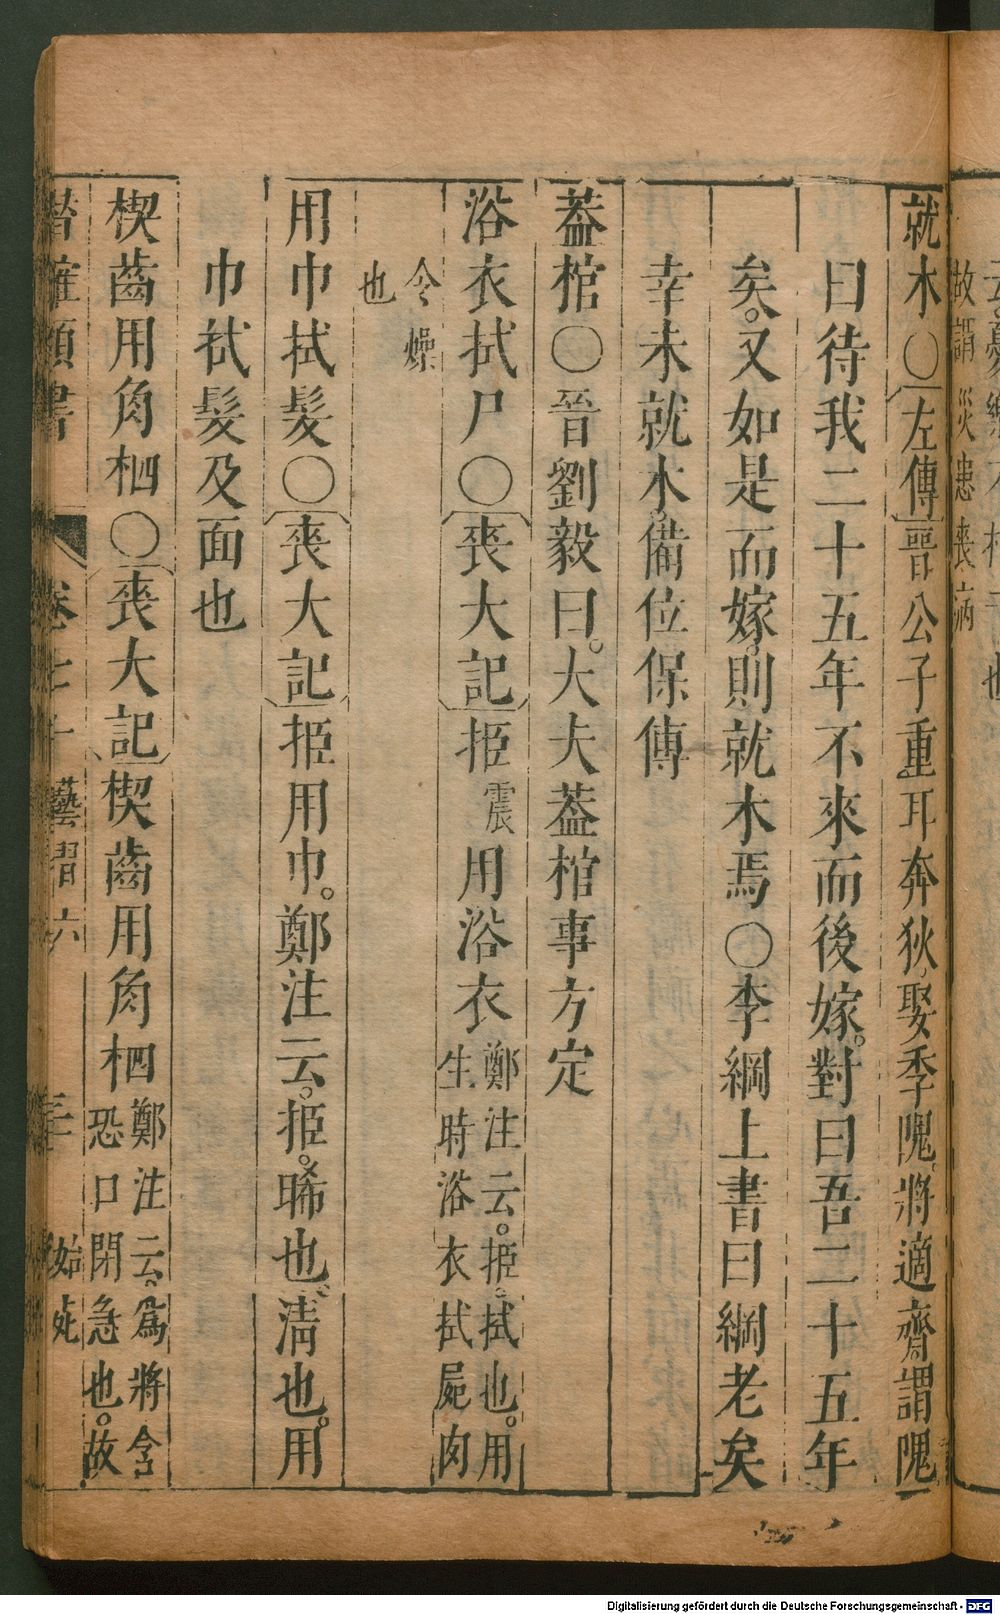 故謂災患喪病
就木〇左傳晉公子重耳奔狄娶季隗將適齊謂隗
曰待我二十五年不來而後嫁。對曰吾二十五年
矣。又如是而嫁。則就木焉〇李綱上書曰綱老矣
幸未就木備位保傅
葢棺〇晉劉毅曰。大夫葢棺事方定
浴衣拭尸〇喪大記挋震用浴衣鄭注云。挋拭也。用
生時浴衣拭屍肉
令燥
也
用巾拭髮〇喪大記挋用巾。鄭注云。挋。晞也清也。用
巾拭髮及面也
楔齒用角柶〇喪大記楔齒用角柶鄭注云為將含
恐口閉急也。故
卷七十 藝習六 始死
Digitalisierung gefördert durch die Deutsche Forschungsgemeinschaft - DFG